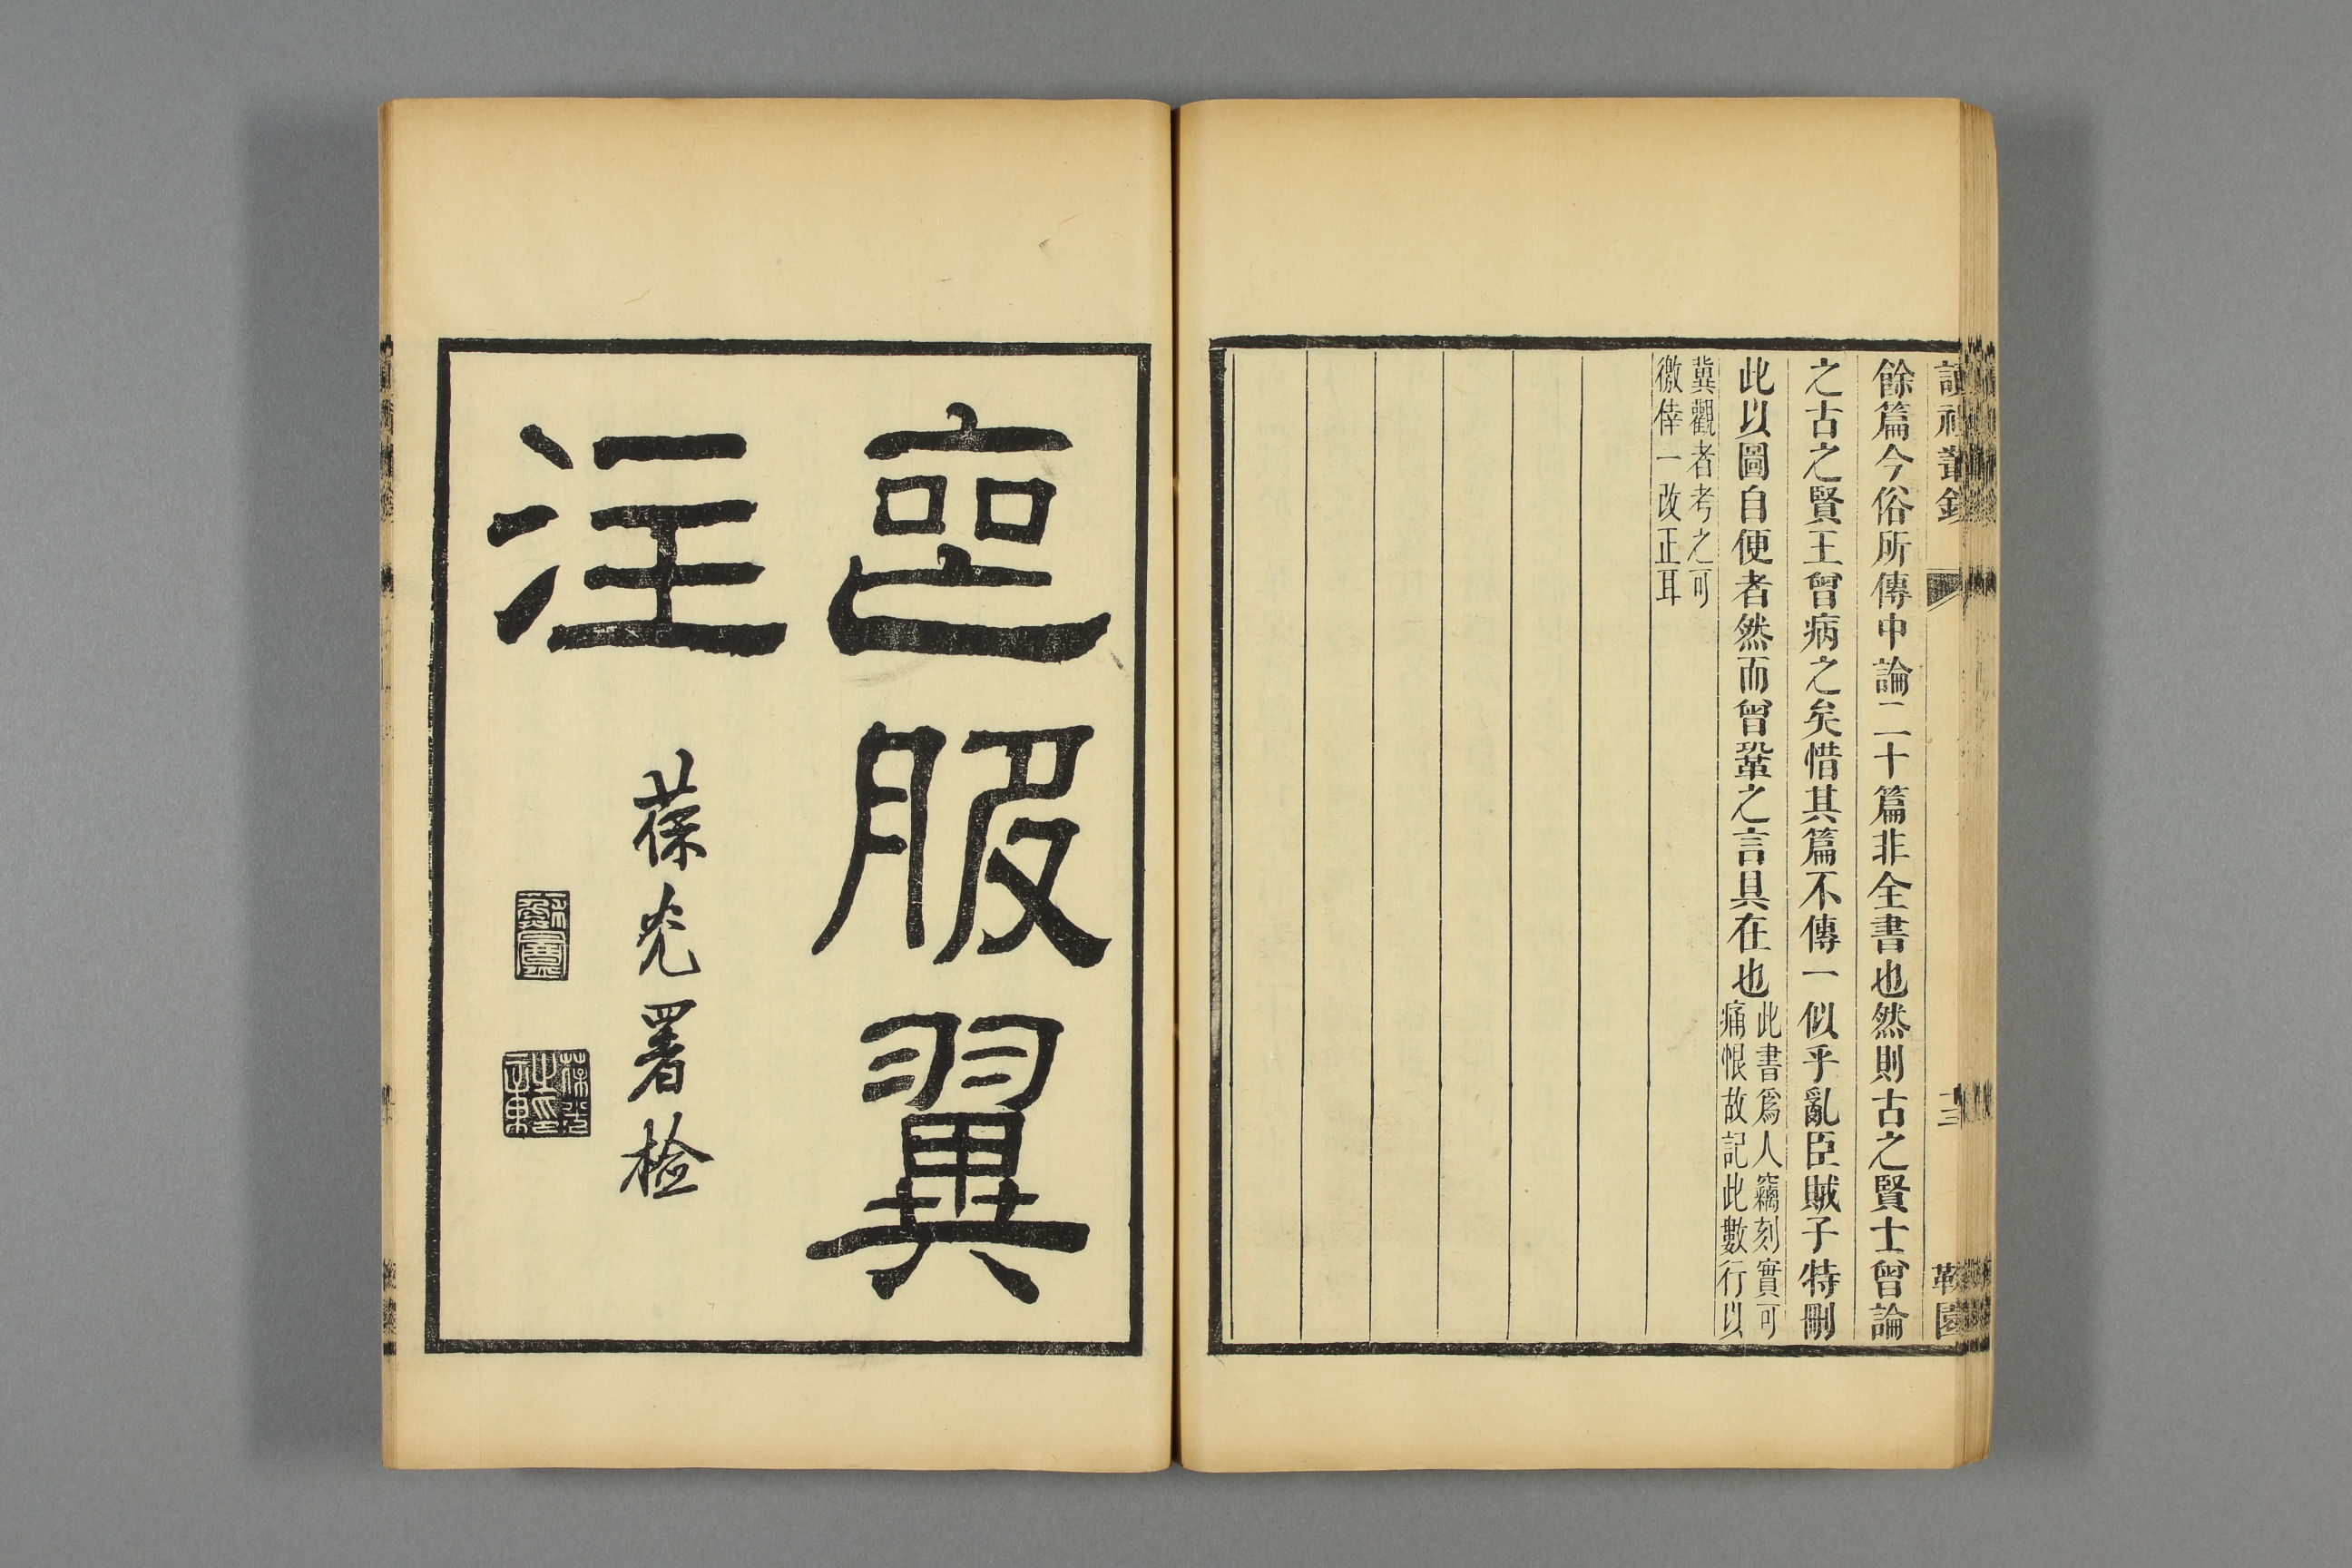 讀禮叢鈔
十三
鞠園
餘篇今俗所傳中論二十篇非全書也然則古之賢士曾論
之古之賢王曾病之矣惜其篇不傳一似乎亂臣賊子特刪
此以圖自便者然而曾鞏之言具在也此書爲人竊刻實可
痛恨故記此數行以
冀觀者考之可
徼倖一改正耳
喪服翼
注
葆光署檢